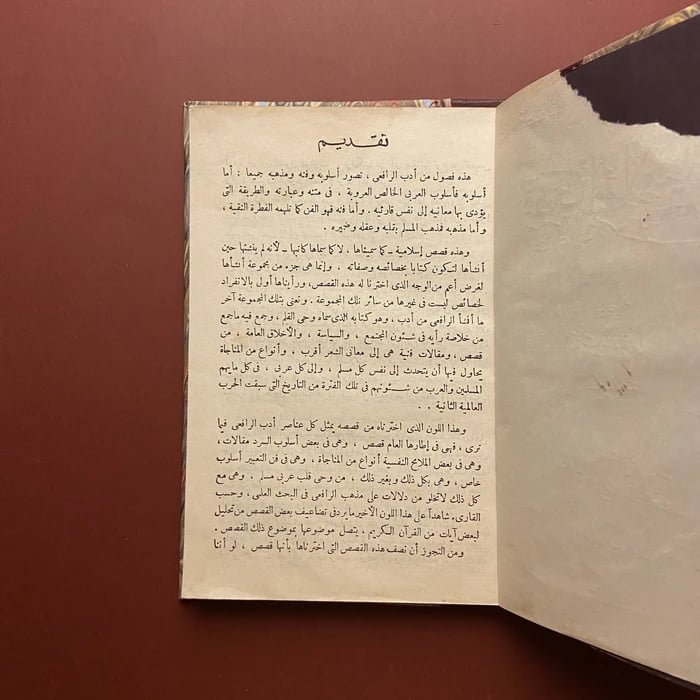 تقديم
هذه فصول من أدب الرافعى ، تصور أسلوبه وفنه ومذهبه جميعا : أما
أسلوبه فأسلوب العربى الخالص العروبة ، فى متنه وعبارته والطريقة التى
يؤدى بها معانيه إلى نفس قارئيه . وأما فنه فهو الفن كما تلهمه الفطرة النقية ،
وأما مذهبه فمذهب المسلم بقلبه وعقله وضميره .
وهذه قصص إسلامية ــ كما سميناها ، لا كما سماها كاتبها ــ لأنه لم ينشئها حين
أنشأها لتكون كتابا بخصائصه وصفاته ، وإنما هى جزء من مجموعة أنشأها
لغرض أعم من الوجه الذى اخترنا له هذه القصص، ورأيناها أولى بالانفراد
لخصائص ليست فى غيرها من سائر تلك المجموعة . ونعنى بتلك المجموعة آخر
ما أنشأ الرافعى من أدب ، وهو كتابه الذى سماه وحى القلم ، وجمع فيه ما جمع
من خلاصة رأيه فى شئون المجتمع ، والسياسة ، والأخلاق العامة ، من
قصص ، ومقالات فنية هى إلى معانى الشعر أقرب ، وأنواع من المناجاة
يحاول فيها أن يتحدث إلى نفس كل مسلم ، وإلى كل عربى ، فى كل ما يهم
المسلمين والعرب من شئونهم فى تلك الفترة من التاريخ التى سبقت الحرب
العالمية الثانية . .
وهذا اللون الذى اخترناه من قصصه يمثل كل عناصر أدب الرافعى فيما
نرى ، فهى فى إطارها العام قصص ، وهى فى بعض أسلوب السرد مقالات ،
وهى فى بعض الملامح النفسية أنواع من المناجاة ، وهى فى فن التعبير أسلوب
خاص ، وهى بكل ذلك وبغير ذلك ، من وحى قلب عربى مسلم . وهى مع
كل ذلك لا تخلو من دلالات على مذهب الرافعى فى البحث العلمى ، وحسب
القارىء شاهداً على هذا اللون الأخير ما يرد فى تضاعيف بعض القصص من تحليل
لبعض آيات من القرآن الكريم ، يتصل موضوعها بموضوع ذلك القصص .
ومن التجوز أن نصف هذه القصص التى اخترناها بأنها قصص ، لو أننا